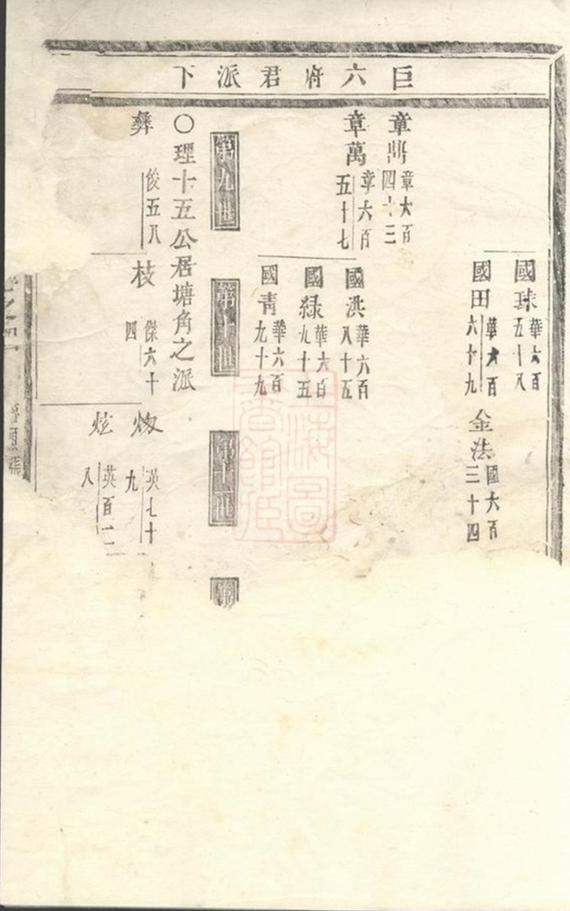 巨六府君派下
國球 華六百五十八
國田 華六百六十九
金法 國六百三十四
章鼎 章六百四十三
章萬 章六百五十七
國洪 華六百八十五
國綠 華六百九十五
國青 華六百九十九
第九世
第十世
第十一世
第
〇理十五公居塘角之派
彝 俊五八
枝 傑六十四
英七十九
炫 英百二八
上海圖書館藏